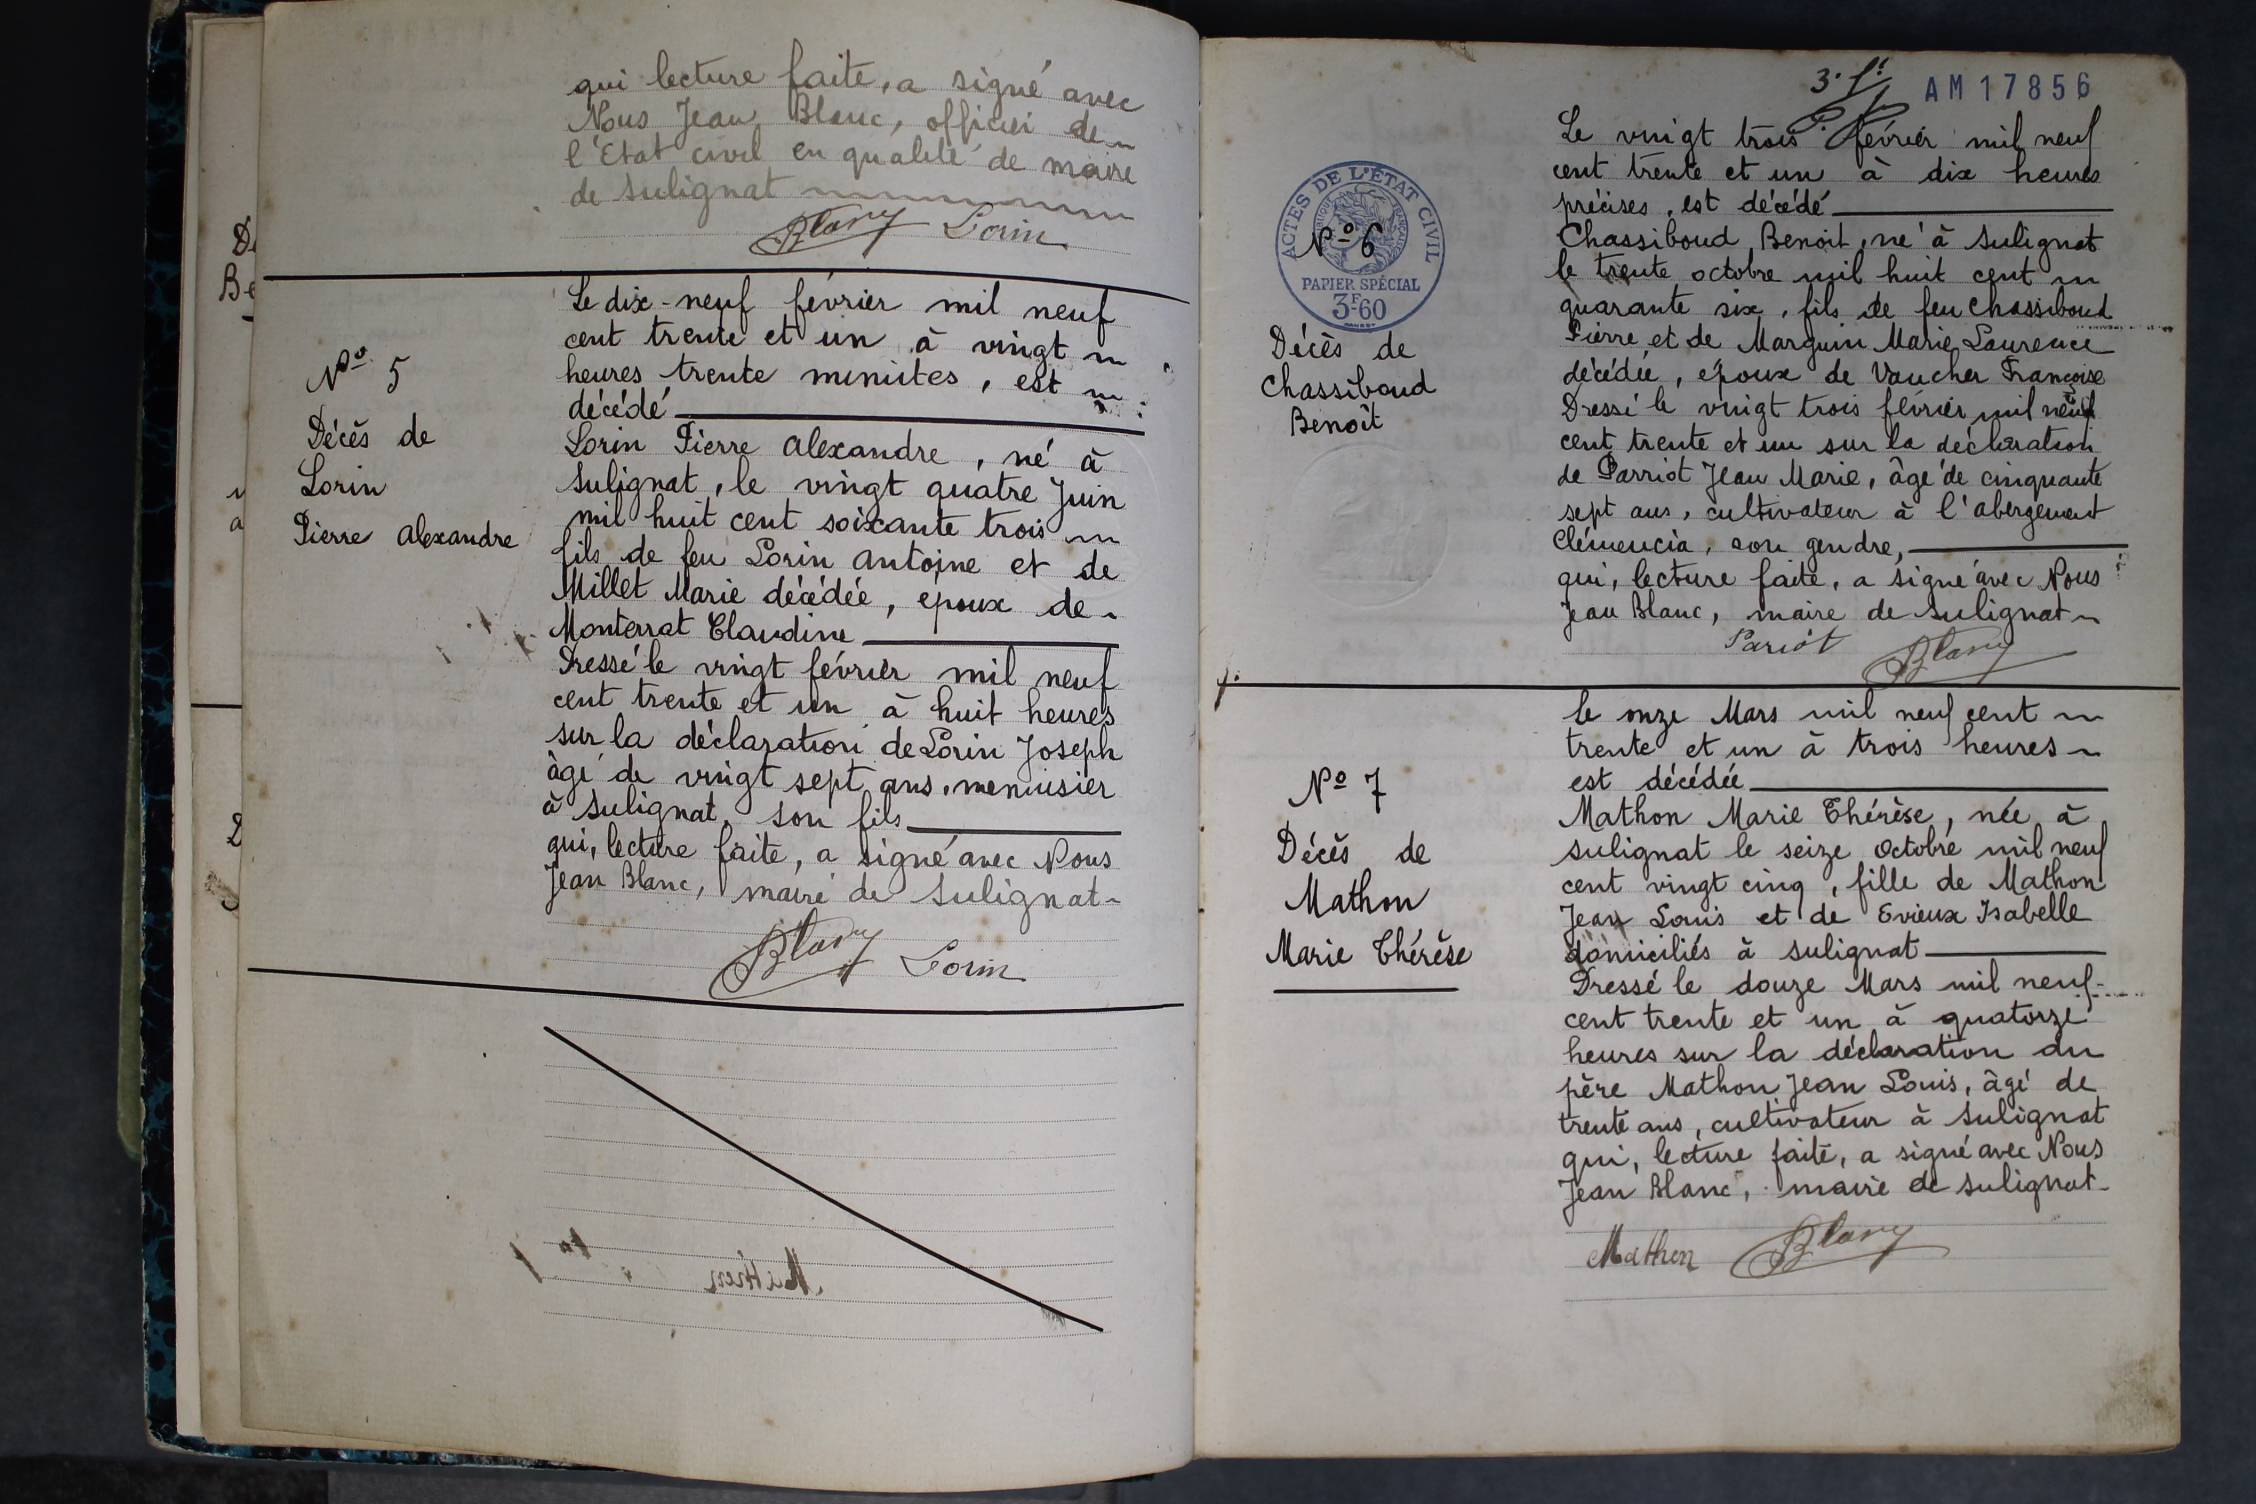 qui lecture faite, a signé avec
Nous Jean Blanc, officier de
l'Etat civil en qualité de maire
de Sulignat
Blanc Lorin
Nº 5
Décès de
Lorin
Pierre Alexandre
Le dix-neuf février mil neuf
cent trente et un à vingt
heures trente minutes, est
décédé
Lorin Pierre Alexandre, né à
Sulignat, le vingt quatre Juin
mil huit cent soixante trois
fils de feu Lorin Antoine et de
Millet Marie décédée, epoux de
Monterrat Claudine
Dressé le vingt février mil neuf
cent trente et un à huit heures
sur la déclaration de Lorin Joseph
âgé de vingt sept ans, menuisier
à Sulignat, son fils
qui, lecture faite, a signé avec Nous
Jean Blanc, maire de Sulignat
Blanc Lorin
AM 17856
ACTES DE L'ÉTAT CIVIL
PAPIER SPÉCIAL
3F60
Nº 6
Décès de
Chassiboud
Benoît
Le vingt trois février mil neuf
cent trente et un à dix heures
précises, est décédé
Chassiboud Benoit, né à Sulignat
le trente octobre mil huit cent
quarante six, fils de feu Chassiboud
Pierre et de Marguin Marie Laurence
décédée, époux de Vaucher Françoise
Dressé le vingt trois février mil neuf
cent trente et un sur la déclaration
de Parriot Jean Marie, âgé de cinquante
sept ans, cultivateur à l'abergement
Clémencia, son gendre,
qui, lecture faite, a signé avec Nous
Jean Blanc, maire de Sulignat
Pariot Blanc
Nº 7
Décès de
Mathon
Marie Thérèse
le onze Mars mil neuf cent
trente et un à trois heures
est décédée
Mathon Marie Thérèse, née à
Sulignat le seize Octobre mil neuf
cent vingt cinq, fille de Mathon
Jean Louis et de Evieux Isabelle
domiciliés à Sulignat
Dressé le douze Mars mil neuf
cent trente et un à quatorze
heures sur la déclaration du
père Mathon Jean Louis, âgé de
trente ans, cultivateur à Sulignat
qui, lecture faite, a signé avec Nous
Jean Blanc, maire de Sulignat
Mathon Blanc